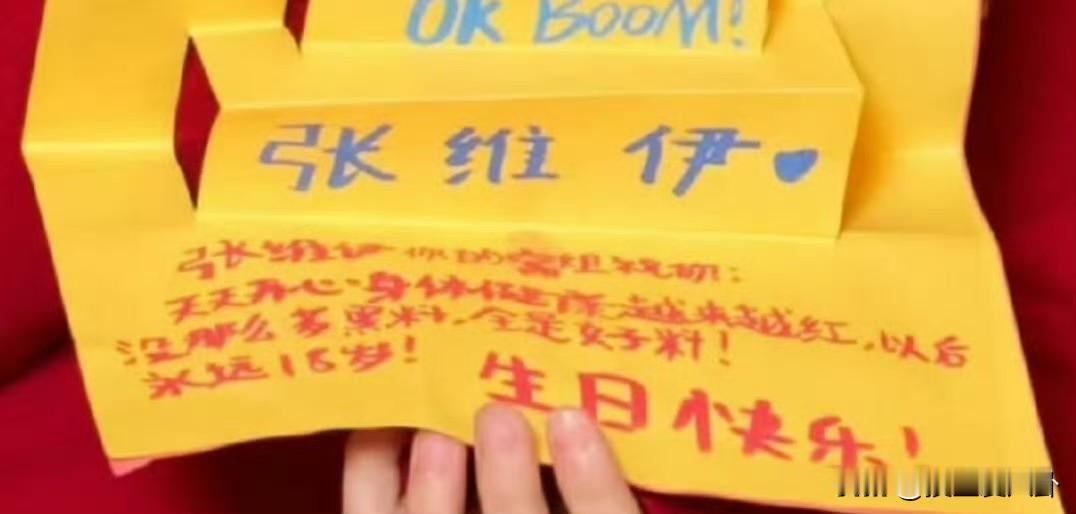 OK BOOM!
张维伊
张维伊你的富姐祝你:
天天开心 身体健康 越来越红,以后
没那么多黑料,全是好料!
永远18岁!
生日快乐!